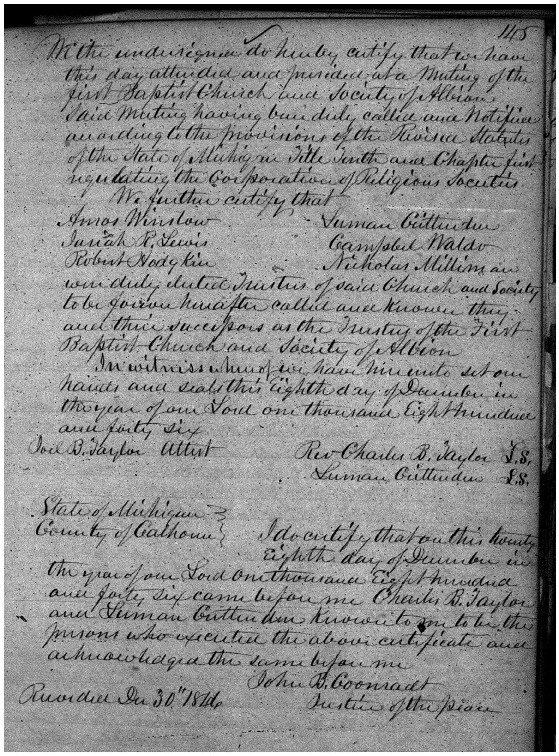 145
We the undersigned do hereby certify that we have
this day attended and presided at a Meeting of the
first Baptist Church and Society of Albion
Said Meeting having been duly called and Notified
according to the provisions of the Revised Statutes
of the State of Michigan Title Tenth and Chapter first
regulating the Corporation of Religious Societies
We further certify that
Amos Winslow Luman Crittenden
Josiah R. Lewis Campbel Waldo
Robert Hodgkin Nicholas Milliman
were duly elected Trustees of said Church and Society
to be forever hereafter called and known they
and their successors as the Trustees of the First
Baptist Church and Society of Albion
In witness whereof we have hereunto set our
hands and seals this Eighth day of December in
the year of our Lord one thousand Eight hundred
and forty six
Joel B. Taylor Attest Rev Charles B. Taylor L.S.
Luman Crittenden L.S.
State of Michigan
County of Calhoun I do certify that on this twenty
Eighth day of December in
the year of our Lord One thousand Eight hundred
and forty six came before me Charles B. Taylor
and Luman Crittenden known to me to be the
persons who executed the above certificate and
acknowledged the same before me
John B. Coonradt
Recorded Dec 30" 1846 Justice of the peace